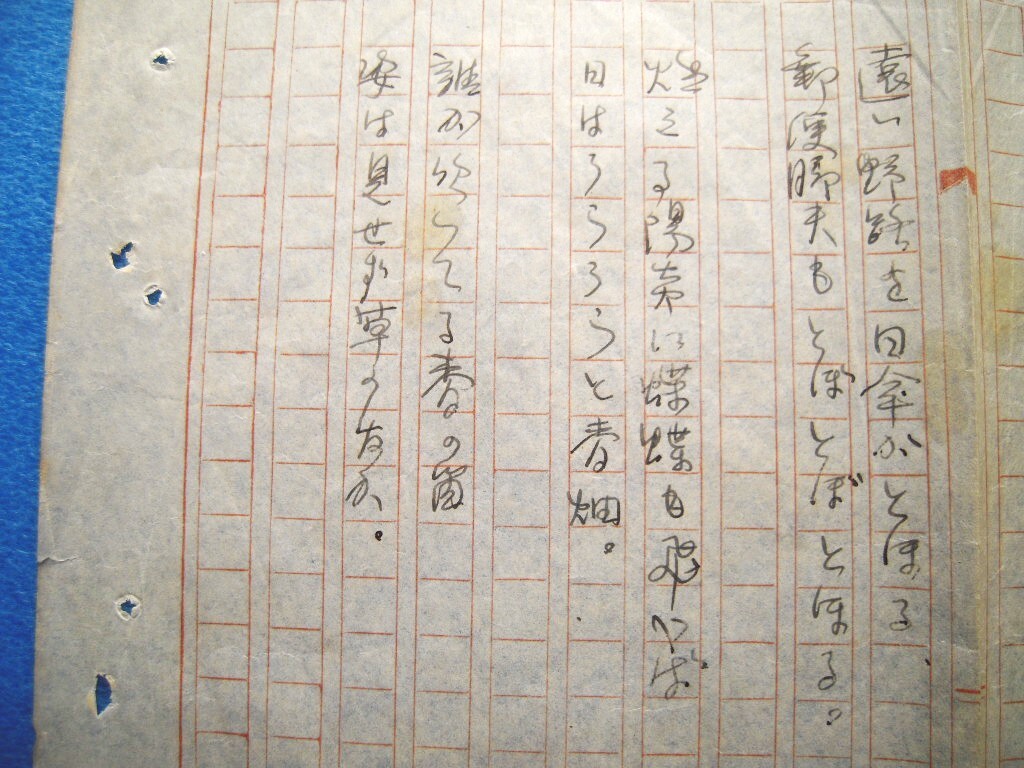 遠い野路を日傘がとほる、
郵便脚夫もとぼとぼとほる。
燃える陽炎に蝶蝶も飛べば
日はうらうらと麦畑。
誰か吹いてる麦の笛
姿は見せず草のなか。